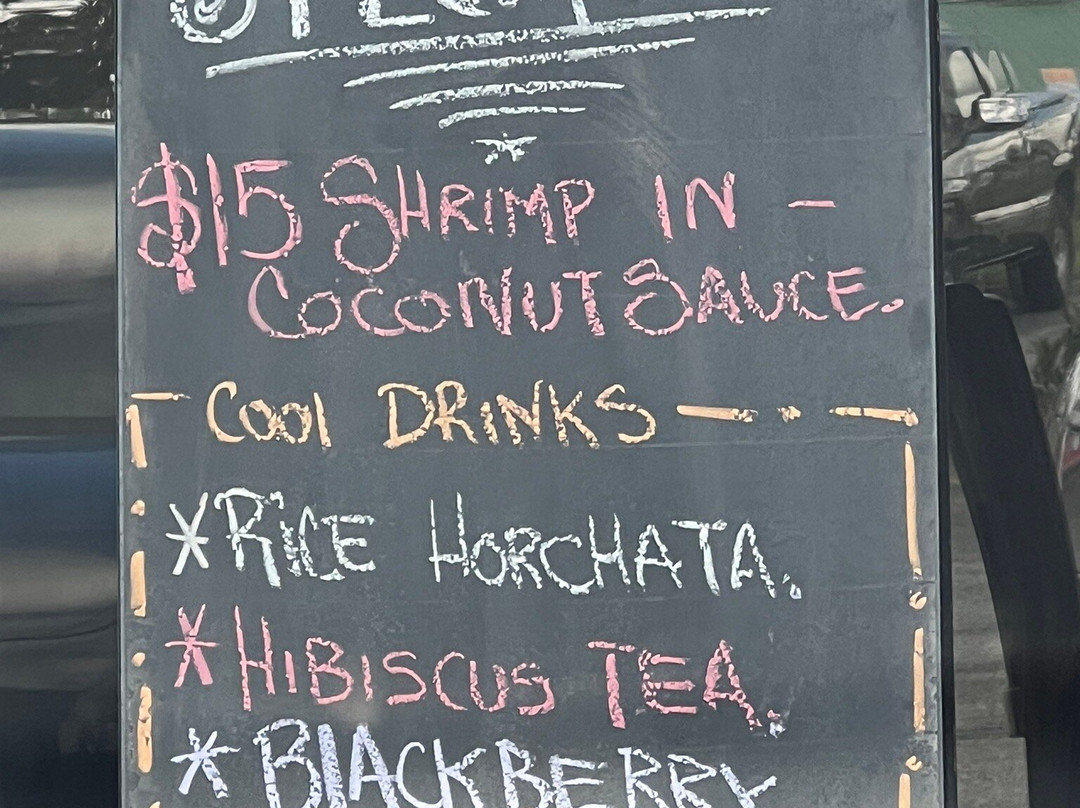 $15 SHRIMP IN -
COCONUT SAUCE.
COOl DRINKS
*RiCE HORCHATA.
*HiBiSCUS TEA.
*BlACKBERRY